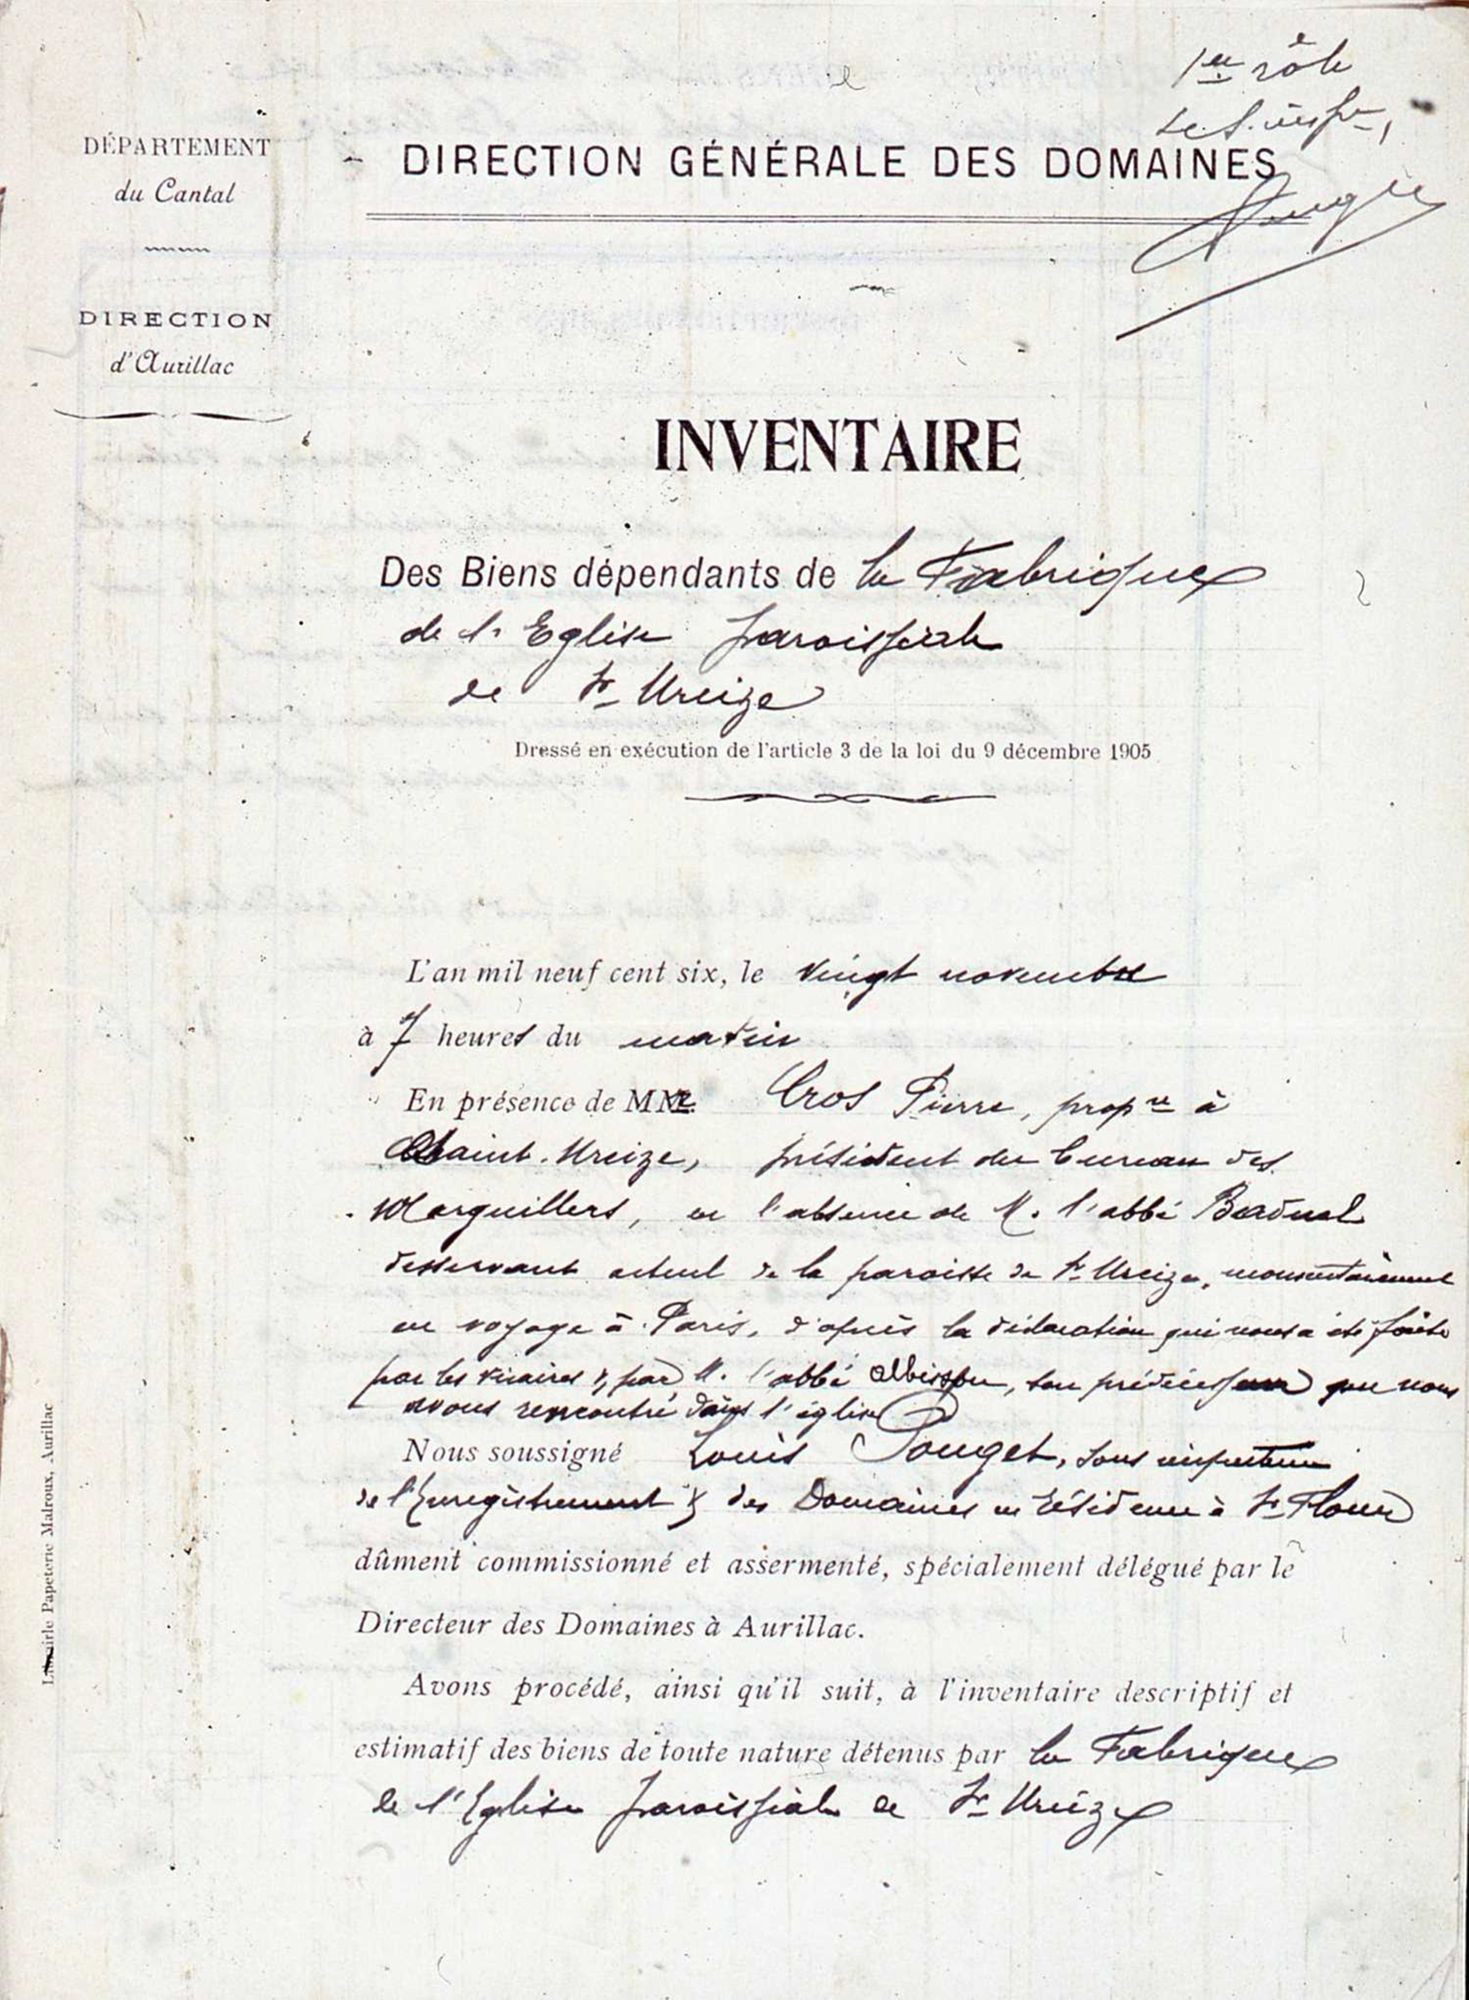 1er rôle
Le S. insp.,
Pouget
DÉPARTEMENT
du Cantal
DIRECTION
d'Aurillac
DIRECTION GÉNÉRALE DES DOMAINES
INVENTAIRE
Des Biens dépendants de la Fabrique
de l'Eglise paroissiale
de St Urcize
Dressé en exécution de l'article 3 de la loi du 9 décembre 1905
L'an mil neuf cent six, le vingt novembre
à 7 heures du matin
En présence de M. Cros Pierre, propre à
Saint-Urcize, président du bureau des
Marguillers, en l'absence de M. l'abbé
desservant actuel de la paroisse de St Urcize, momentanément
en voyage à Paris, d'après la déclaration qui nous a été faite
par les vicaires & par M. l'abbé, son prédécesseur que nous
avons rencontré dans l'église
Nous soussigné Louis Pouget, sous inspecteur
de l'Enregistrement & des Domaines en résidence à St Flour
dûment commissionné et assermenté, spécialement délégué par le
Directeur des Domaines à Aurillac.
Avons procédé, ainsi qu'il suit, à l'inventaire descriptif et
estimatif des biens de toute nature détenus par la Fabrique
de l'Eglise paroissiale de St Urcize
Librairie Papeterie Malroux, Aurillac